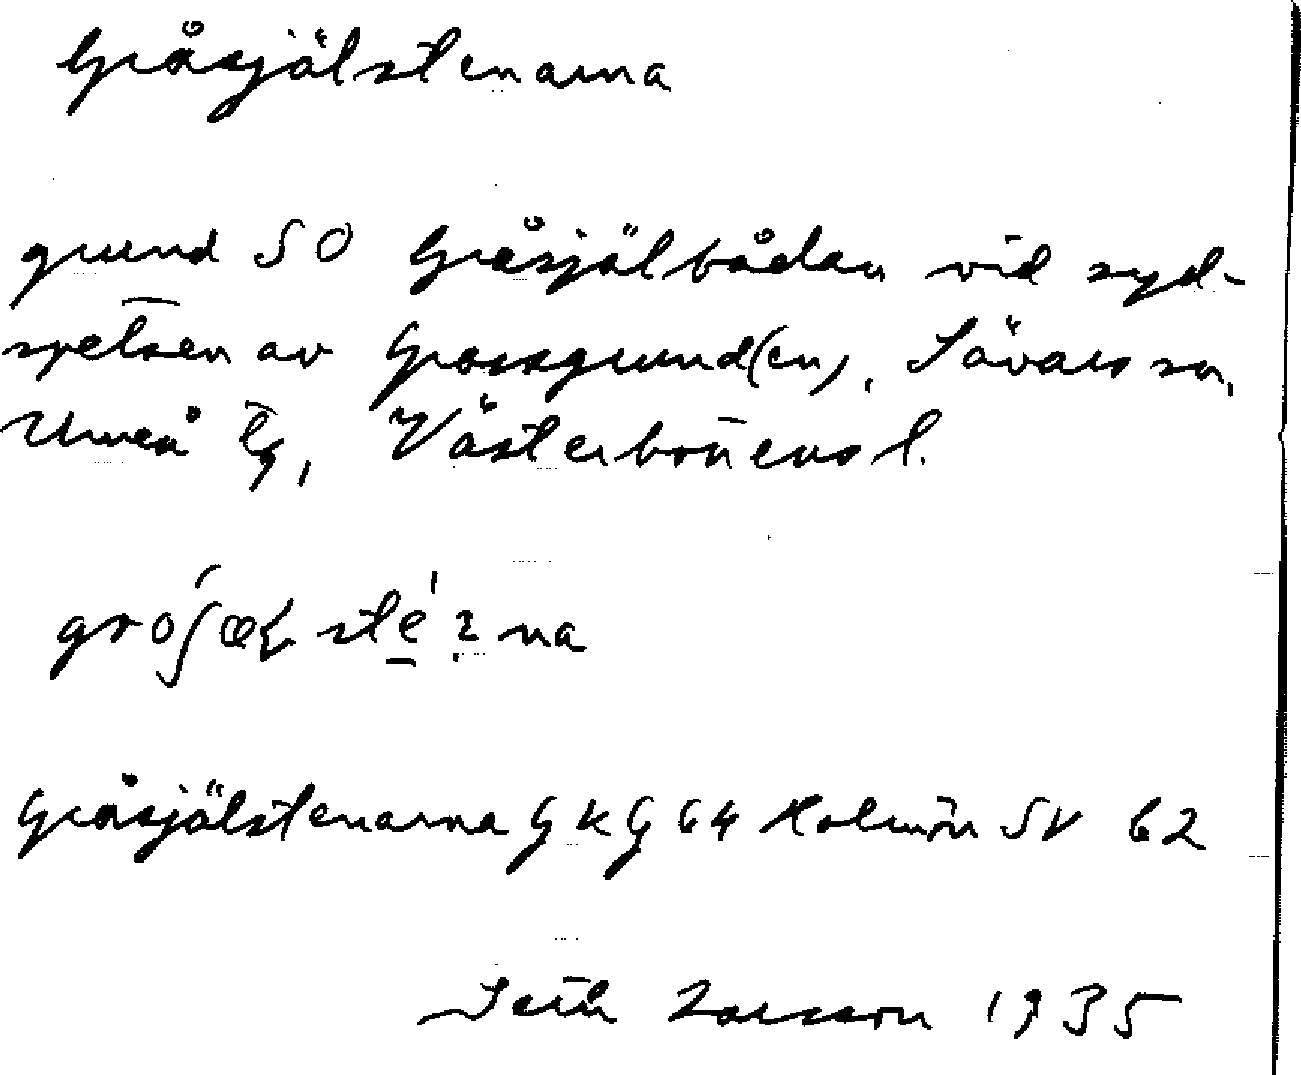 Gråsjälstenarna
grund SO Gråsjälbådan vid syd-
spetsen av Grossgrund(en), Sävars sn,
Umeå tg, Västerbottens l.
Gråsjälstenarna GKG 64 Holmön SV 62
Seth Larsson 1935